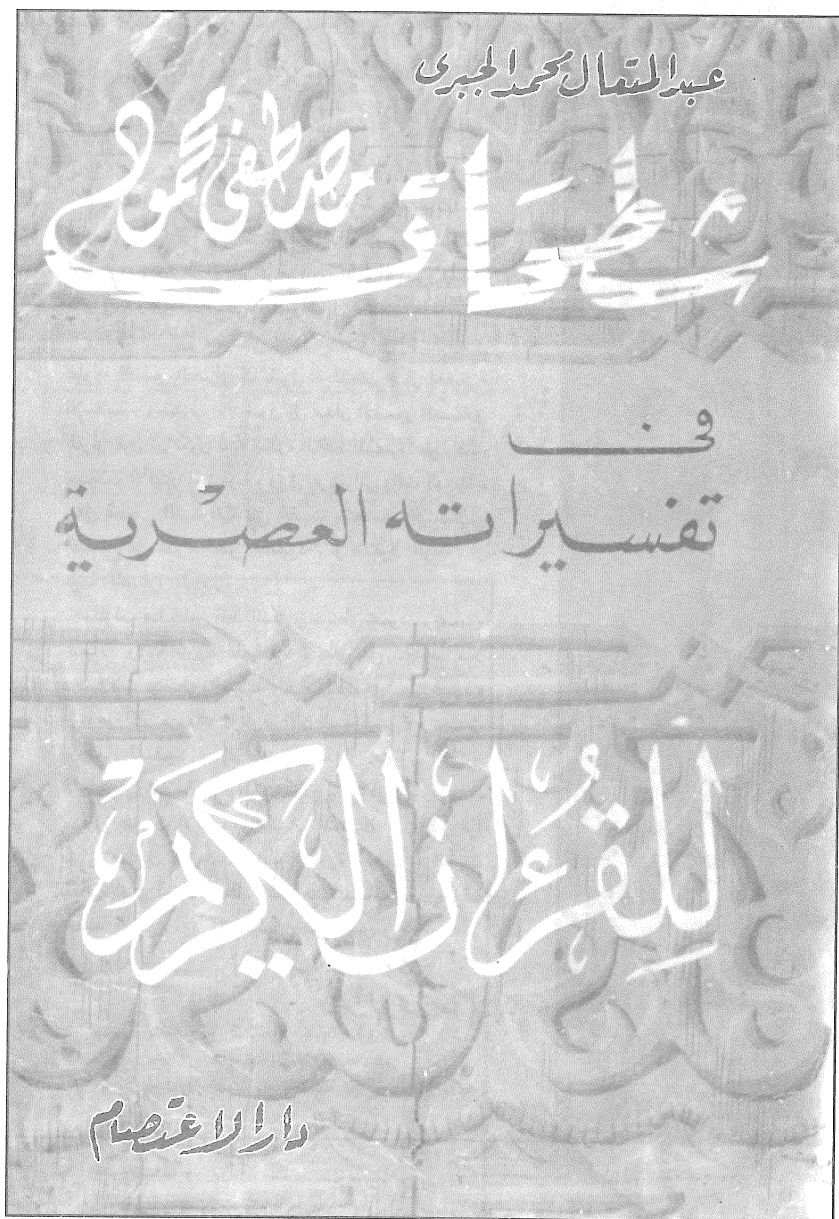 عبد المتعال محمد الجبرى
شطحات مصطفى محمود
فى
تفسيراته العصرية
للقرءان الكريم
دار الاعتصام